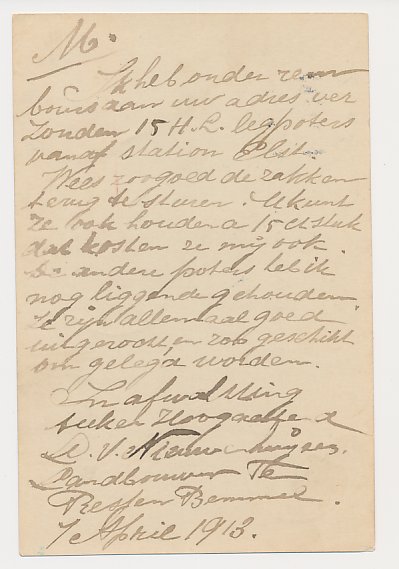 M.
Ik heb onder rem
bours aan uw adres ver
zonden 15 H.L. legpoters
vanaf station Elst.
Wees zoo goed de zakken
terug te sturen. U kunt
ze ook houden a 15 ct stuk
dat kosten ze mij ook.
De andere poters heb ik
nog liggende gehouden
ze zijn allemaal goed
uitgezocht en zoo geschikt
om gelegd worden.
In afwachting
teeken Hoogachtend
D. V. Nieuwenhuijzen.
Landbouwer Te
Ressen Bemmel.
7 April 1913.